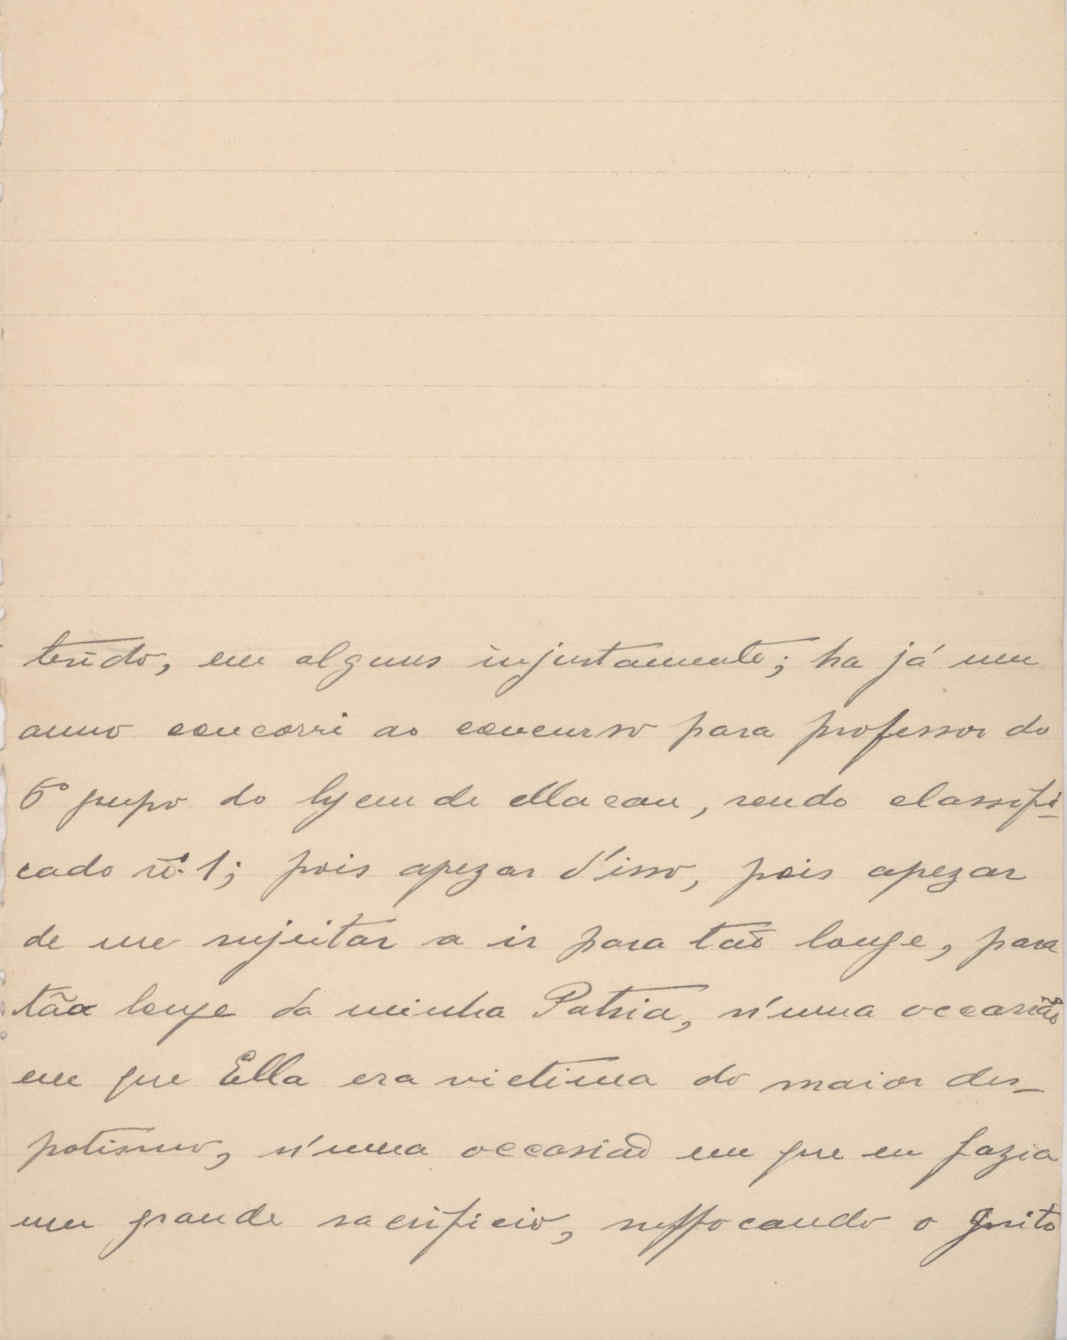 tendo, em alguns injustamente; ha já um
anno concorri ao concurso para professor do
6º grupo do lyceu de Macau, sendo classifi-
cado nº. 1; pois apezar d'isso, pois apezar
de me sujeitar a ir para tão longe, para
tão longe da minha Patria, n'uma occasião
em que Ella era victima do maior des-
potismo, n'uma occasião em que eu fazia
um grande sacrificio, suffocando o grito